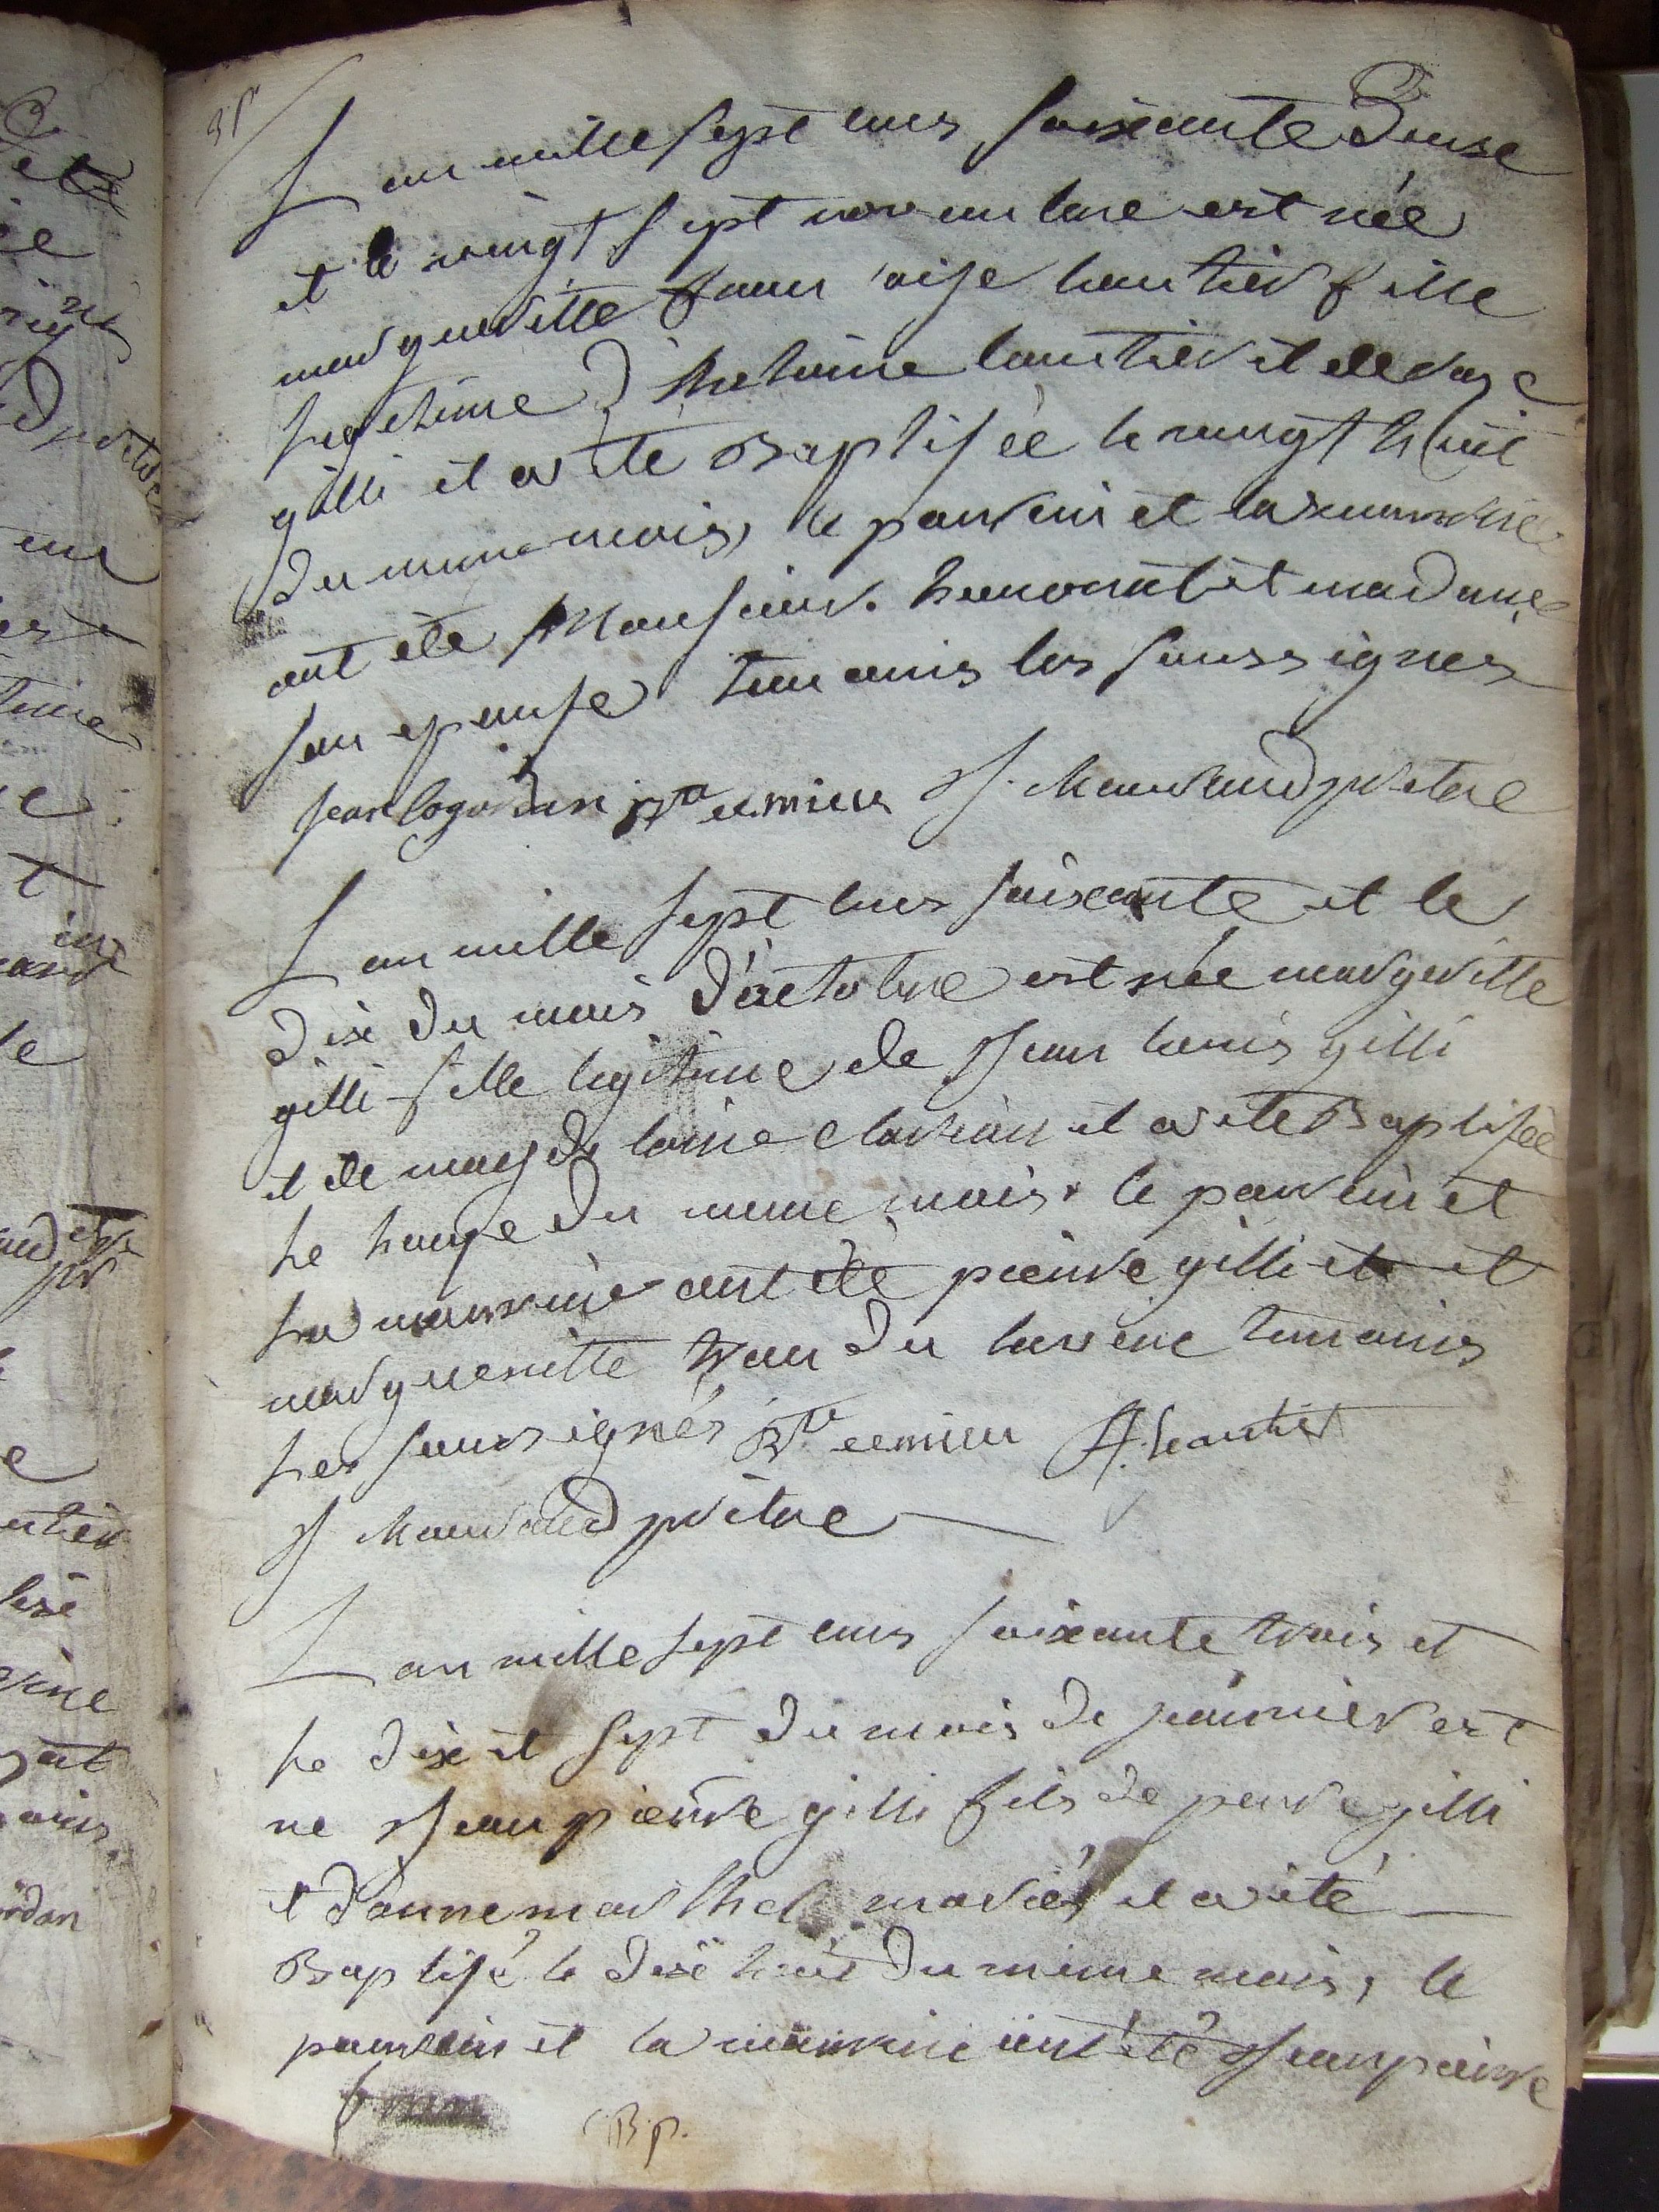 L an mille sept cens soixante Douse
et le vingt sept novembre est née
margueritte francoise lautier fille
legitime d'Antoine lautier et de rose
gilli et a été Baptisée le vingt huit
du meme mois, le parrein et la marreine
ont été Monsieur. honorat et madame
son epouse temoins les soussignes
jean logordan Bte eemieu J. Marraud pretre
L an mille sept cens soixante et le
dix du mois d'actobre est née margeritte
gilli fille legitime de Jean louis gilli
et de magdelaine clarion et a ete Baptisée
le honze du meme mois. le parrein et
la marreine ont été pierre gilli et et
marguenitte du temoins
les soussignés Bte eemieu A. Lautier
J Marraud prêtre
L an mille sept cens soixante trois et
le dix et sept du mois de janvier est
ne Jean pierre gilli fils de perre gilli
et d'anne marthel mariés et a été
Baptisé le dix huit du même mois, le
parrein et la marreine ont été Jean pierre
B.p.